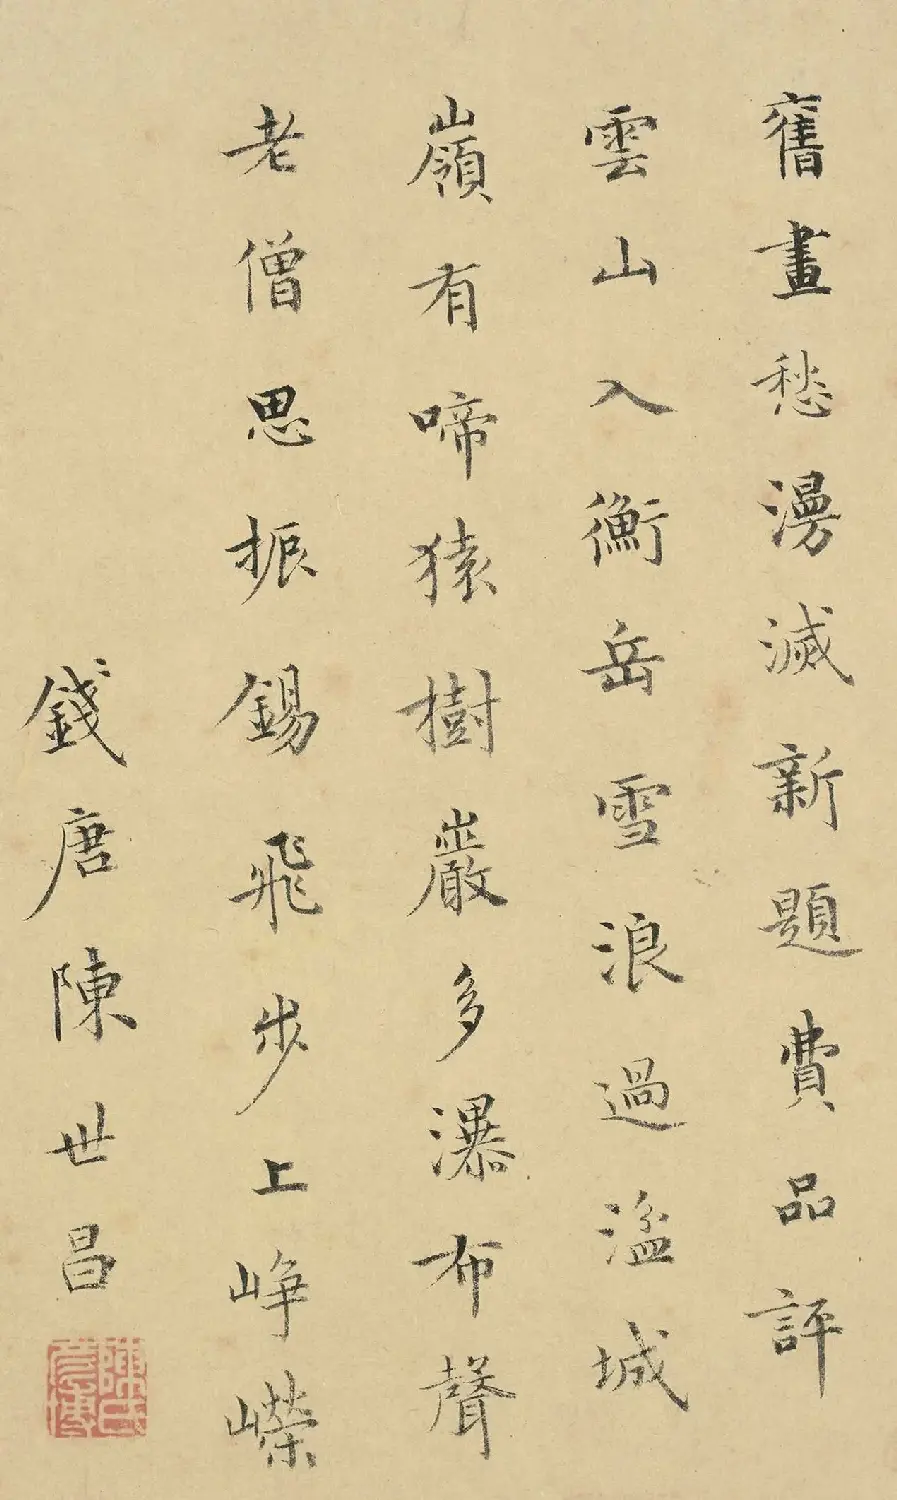 舊畫愁漫滅新題費品評
雲山入衡岳雪浪過湓城
嶺有啼猿樹巖多瀑布聲
老僧思振錫飛步上崢嶸
錢唐陳世昌
陳氏彥博